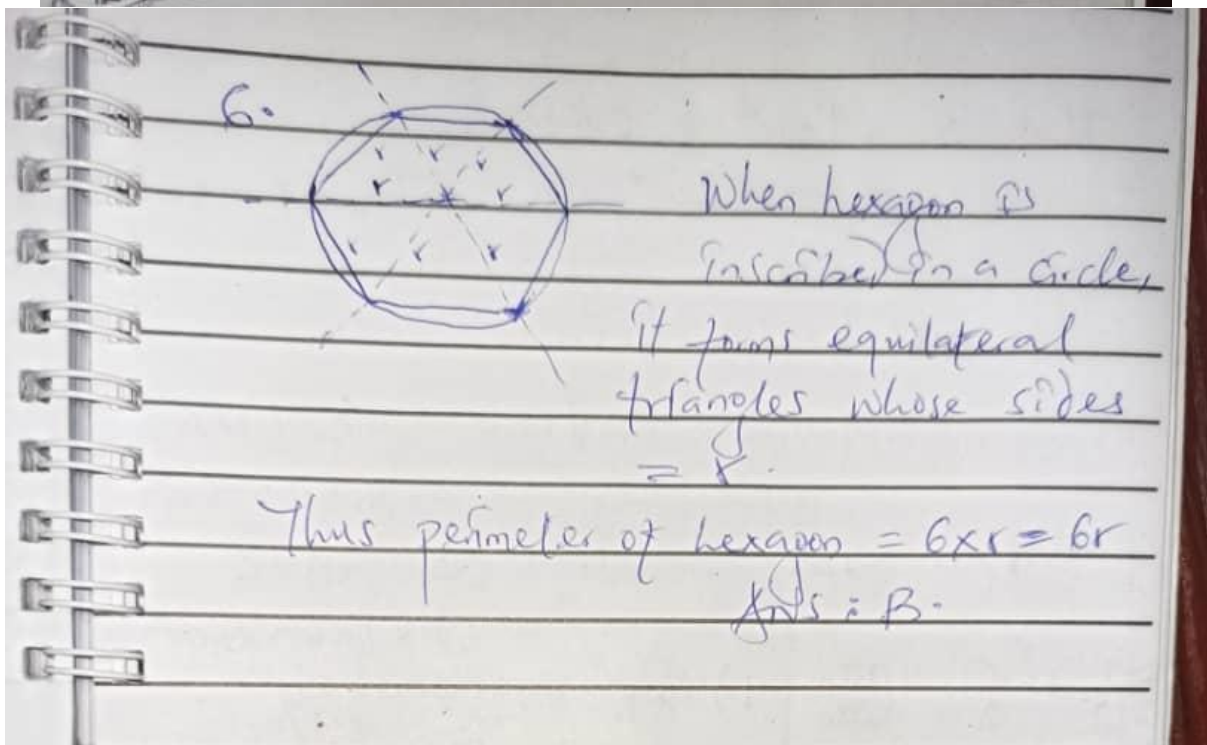 6.
r r r
r r
r r r
When hexagon is
inscribed in a circle,
it forms equilateral
triangles whose sides
= r.
Thus perimeter of hexagon = 6×r = 6r
Ans : B.